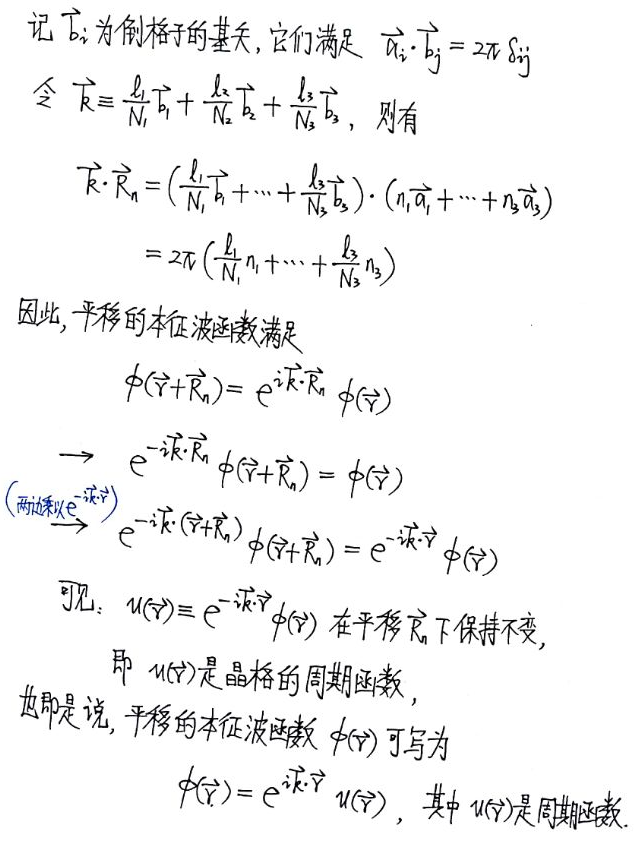 记 b⃗ᵢ 为倒格子的基矢, 它们满足 a⃗ᵢ·b⃗ⱼ = 2π δᵢⱼ
令 k⃗ ≡ l₁/N₁ b⃗₁ + l₂/N₂ b⃗₂ + l₃/N₃ b⃗₃, 则有
k⃗·R⃗ₙ = (l₁/N₁ b⃗₁ + ··· + l₃/N₃ b⃗₃)·(n₁a⃗₁ + ··· + n₃a⃗₃)
= 2π (l₁/N₁ n₁ + ··· + l₃/N₃ n₃)
因此, 平移的本征波函数满足
ϕ(r⃗+R⃗ₙ) = e^{ik⃗·R⃗ₙ} ϕ(r⃗)
→ e^{-ik⃗·R⃗ₙ} ϕ(r⃗+R⃗ₙ) = ϕ(r⃗)
(两边乘以 e^{-ik⃗·r⃗})
→ e^{-ik⃗·(r⃗+R⃗ₙ)} ϕ(r⃗+R⃗ₙ) = e^{-ik⃗·r⃗} ϕ(r⃗)
可见: u(r⃗) ≡ e^{-ik⃗·r⃗} ϕ(r⃗) 在平移 R⃗ₙ 下保持不变,
即 u(r⃗) 是晶格的周期函数,
也即是说, 平移的本征波函数 ϕ(r⃗) 可写为
ϕ(r⃗) = e^{ik⃗·r⃗} u(r⃗), 其中 u(r⃗) 是周期函数.